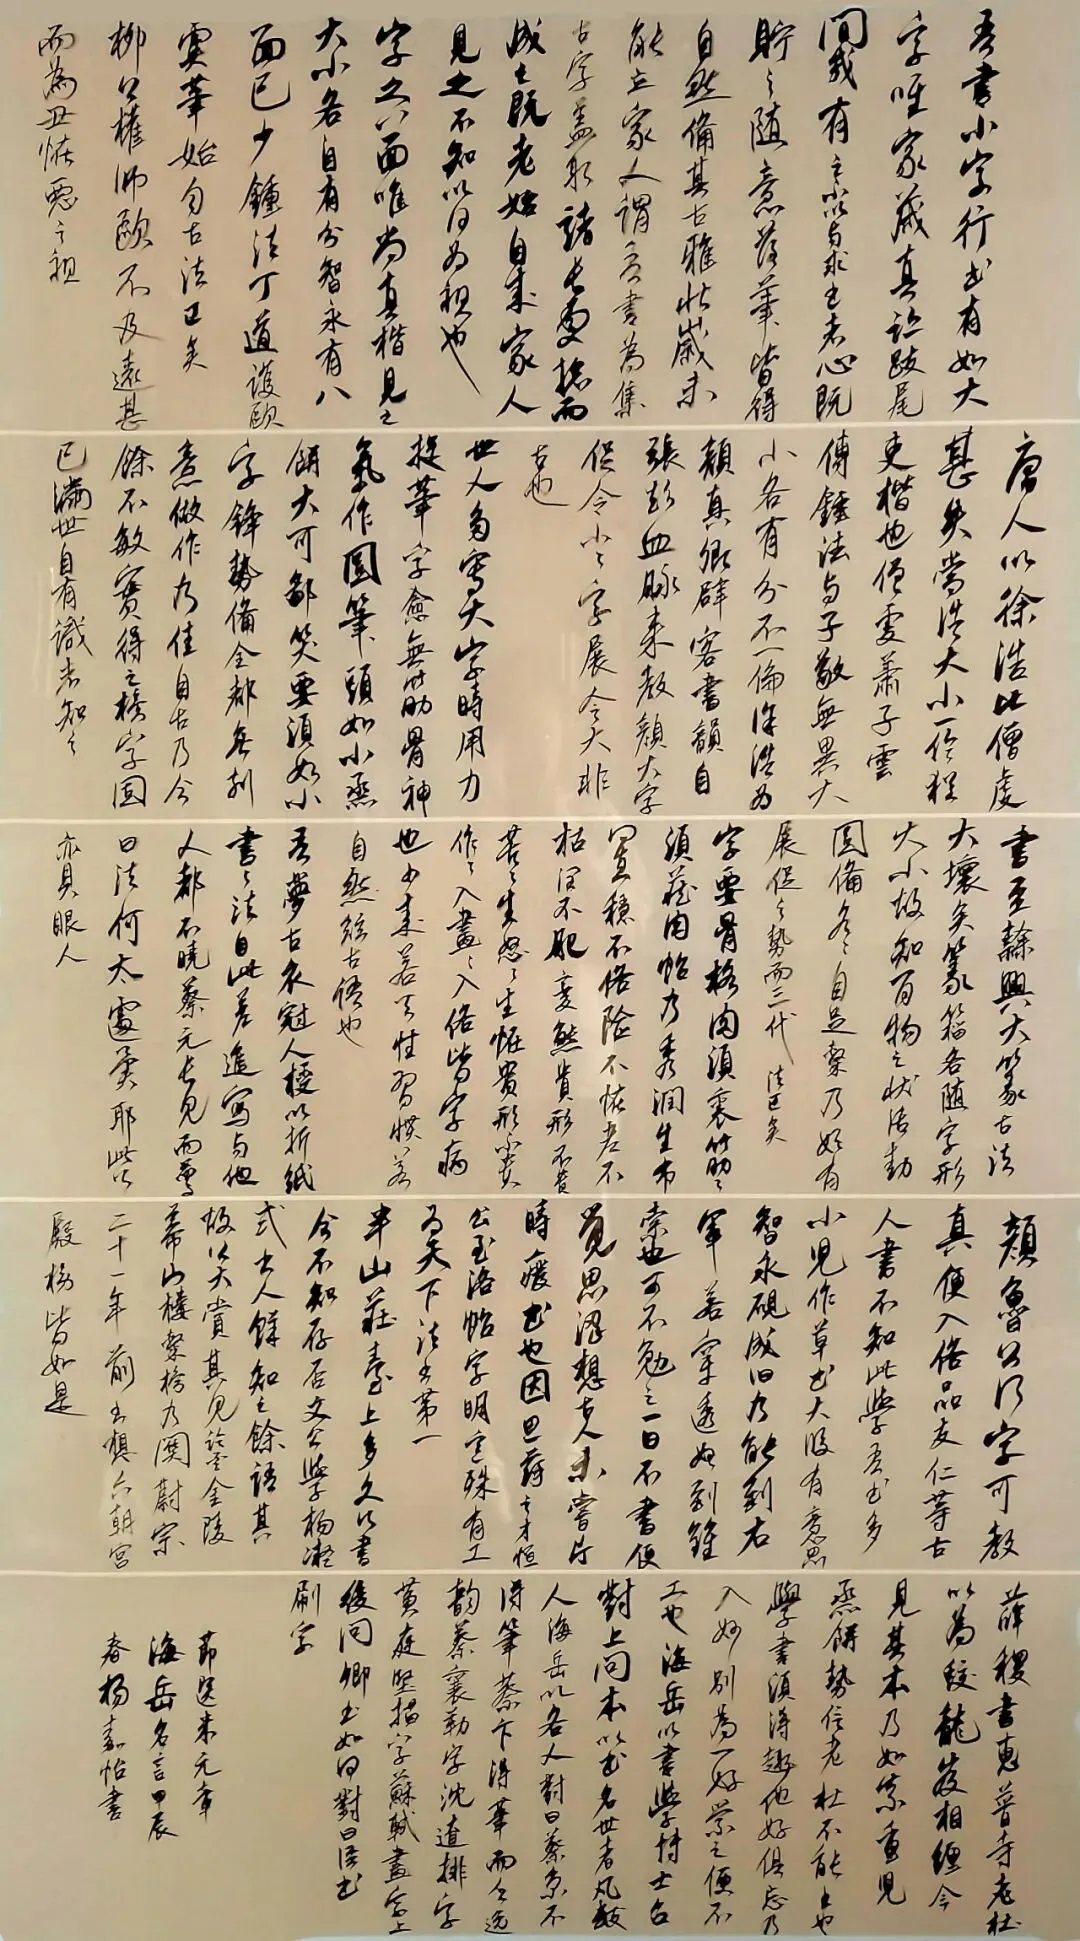 吾書小字行書有如大
字唯家藏真跡跋尾
間或有之不以與求書者心既
貯之随意落筆皆得
自然備其古雅壮歲未
能立家人謂吾書為集
古字盖取諸長處揔而
成之既老始自成家人
見之不知以何為祖也
字之八面唯尚真楷見之
大小各自有分智永有八
面已少鍾法丁道護歐
虞筆始勻古法亡矣
柳公權師歐不及遠甚
而為丑怪惡之祖
唐人以徐浩比僧虔
甚失當浩大小一倫猶
吏楷也僧虔蕭子雲
傳鍾法与子敬無異大
小各有分不一倫徐浩為
顏真卿辟客書韻自
張颠血脉来教顏大字
促令小小字展令大非
古也
世人多寫大字時用力
捉筆字愈無筋骨神
氣作圓筆頭如小蒸
餅大可鄙笑要須如小
字鋒勢備全都無刻
意做作乃佳自古乃今
餘不敏實得之榜字固
已滿世自有識者知之
書至隸興大篆古法
大壞矣篆籀各随字形
大小故知百物之状活動
圓備各各自足隸乃始有
展促之勢而三代法亡矣
字要骨格肉須裹筋筋
須藏肉帖乃秀潤生布
置穩不俗險不怪老不
枯润不肥变態貴形不貴
苦苦生怒怒生怪貴形不貴
作作入畫畫入俗皆字病
也少成若天性習慣若
自然兹古語也
吾夢古衣冠人授以折紙
書書法自此差進寫与他
人都不曉蔡元長見而驚
曰法何太遽異耶此公
亦具眼人
顏魯公行字可教
真便入俗品友仁等古
人書不知此學吾書多
小兒作草書大段有意思
智永硯成臼乃能到右
軍若穿透始到鍾
索也可不勉之一日不書便
覺思澀想古人未嘗片
時癈書也因思蘓之才恒
公至洛帖字明意殊有工
為天下法書第一
半山莊臺上多文公書
今不知存否文公學楊凝
式書人鮮知之餘語其
故公大賞其見鑒金陵
幕山樓隸榜乃関蔚宗
二十一年前書想六朝宮
殿榜皆如是
薛稷書惠普寺老杜
以為蛟龍岌相纒今
見其本乃如柰重兒
蒸餅勢信老杜不能書也
學書須得趣他好俱忘乃
入妙别為一好縈之便不
工也海岳以書學博士召
對上问本以書名世者凡數
人海岳以各人對曰蔡京不
得筆蔡卞得筆而乏逸
韵蔡襄勒字沈遼排字
黄庭堅描字蘇軾畫字上
後问卿書如何對曰臣書
刷字
節選米元章
海岳名言甲辰
春楊嘉怡書